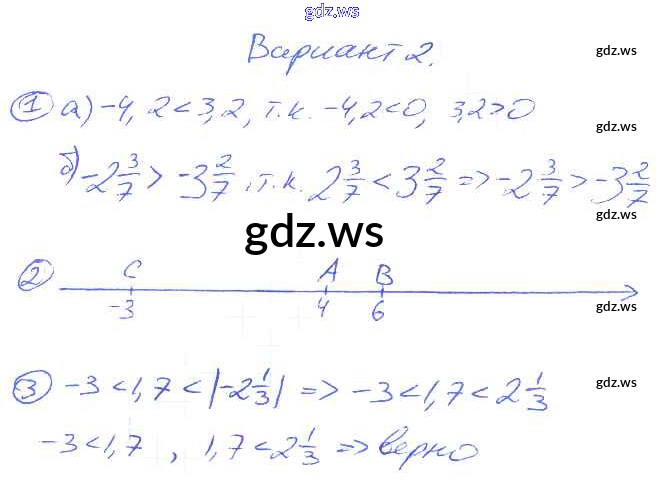 gdz.ws
Вариант 2.
gdz.ws
① а) -4,2 < 3,2, т.к. -4,2 < 0, 3,2 > 0
gdz.ws
б) -2 3/7 > -3 2/7, т.к. 2 3/7 < 3 2/7 => -2 3/7 > -3 2/7
gdz.ws
gdz.ws
② C A B
-3 4 6
gdz.ws
③ -3 < 1,7 < |-2 1/3| => -3 < 1,7 < 2 1/3
gdz.ws
-3 < 1,7 , 1,7 < 2 1/3 => верно
gdz.ws